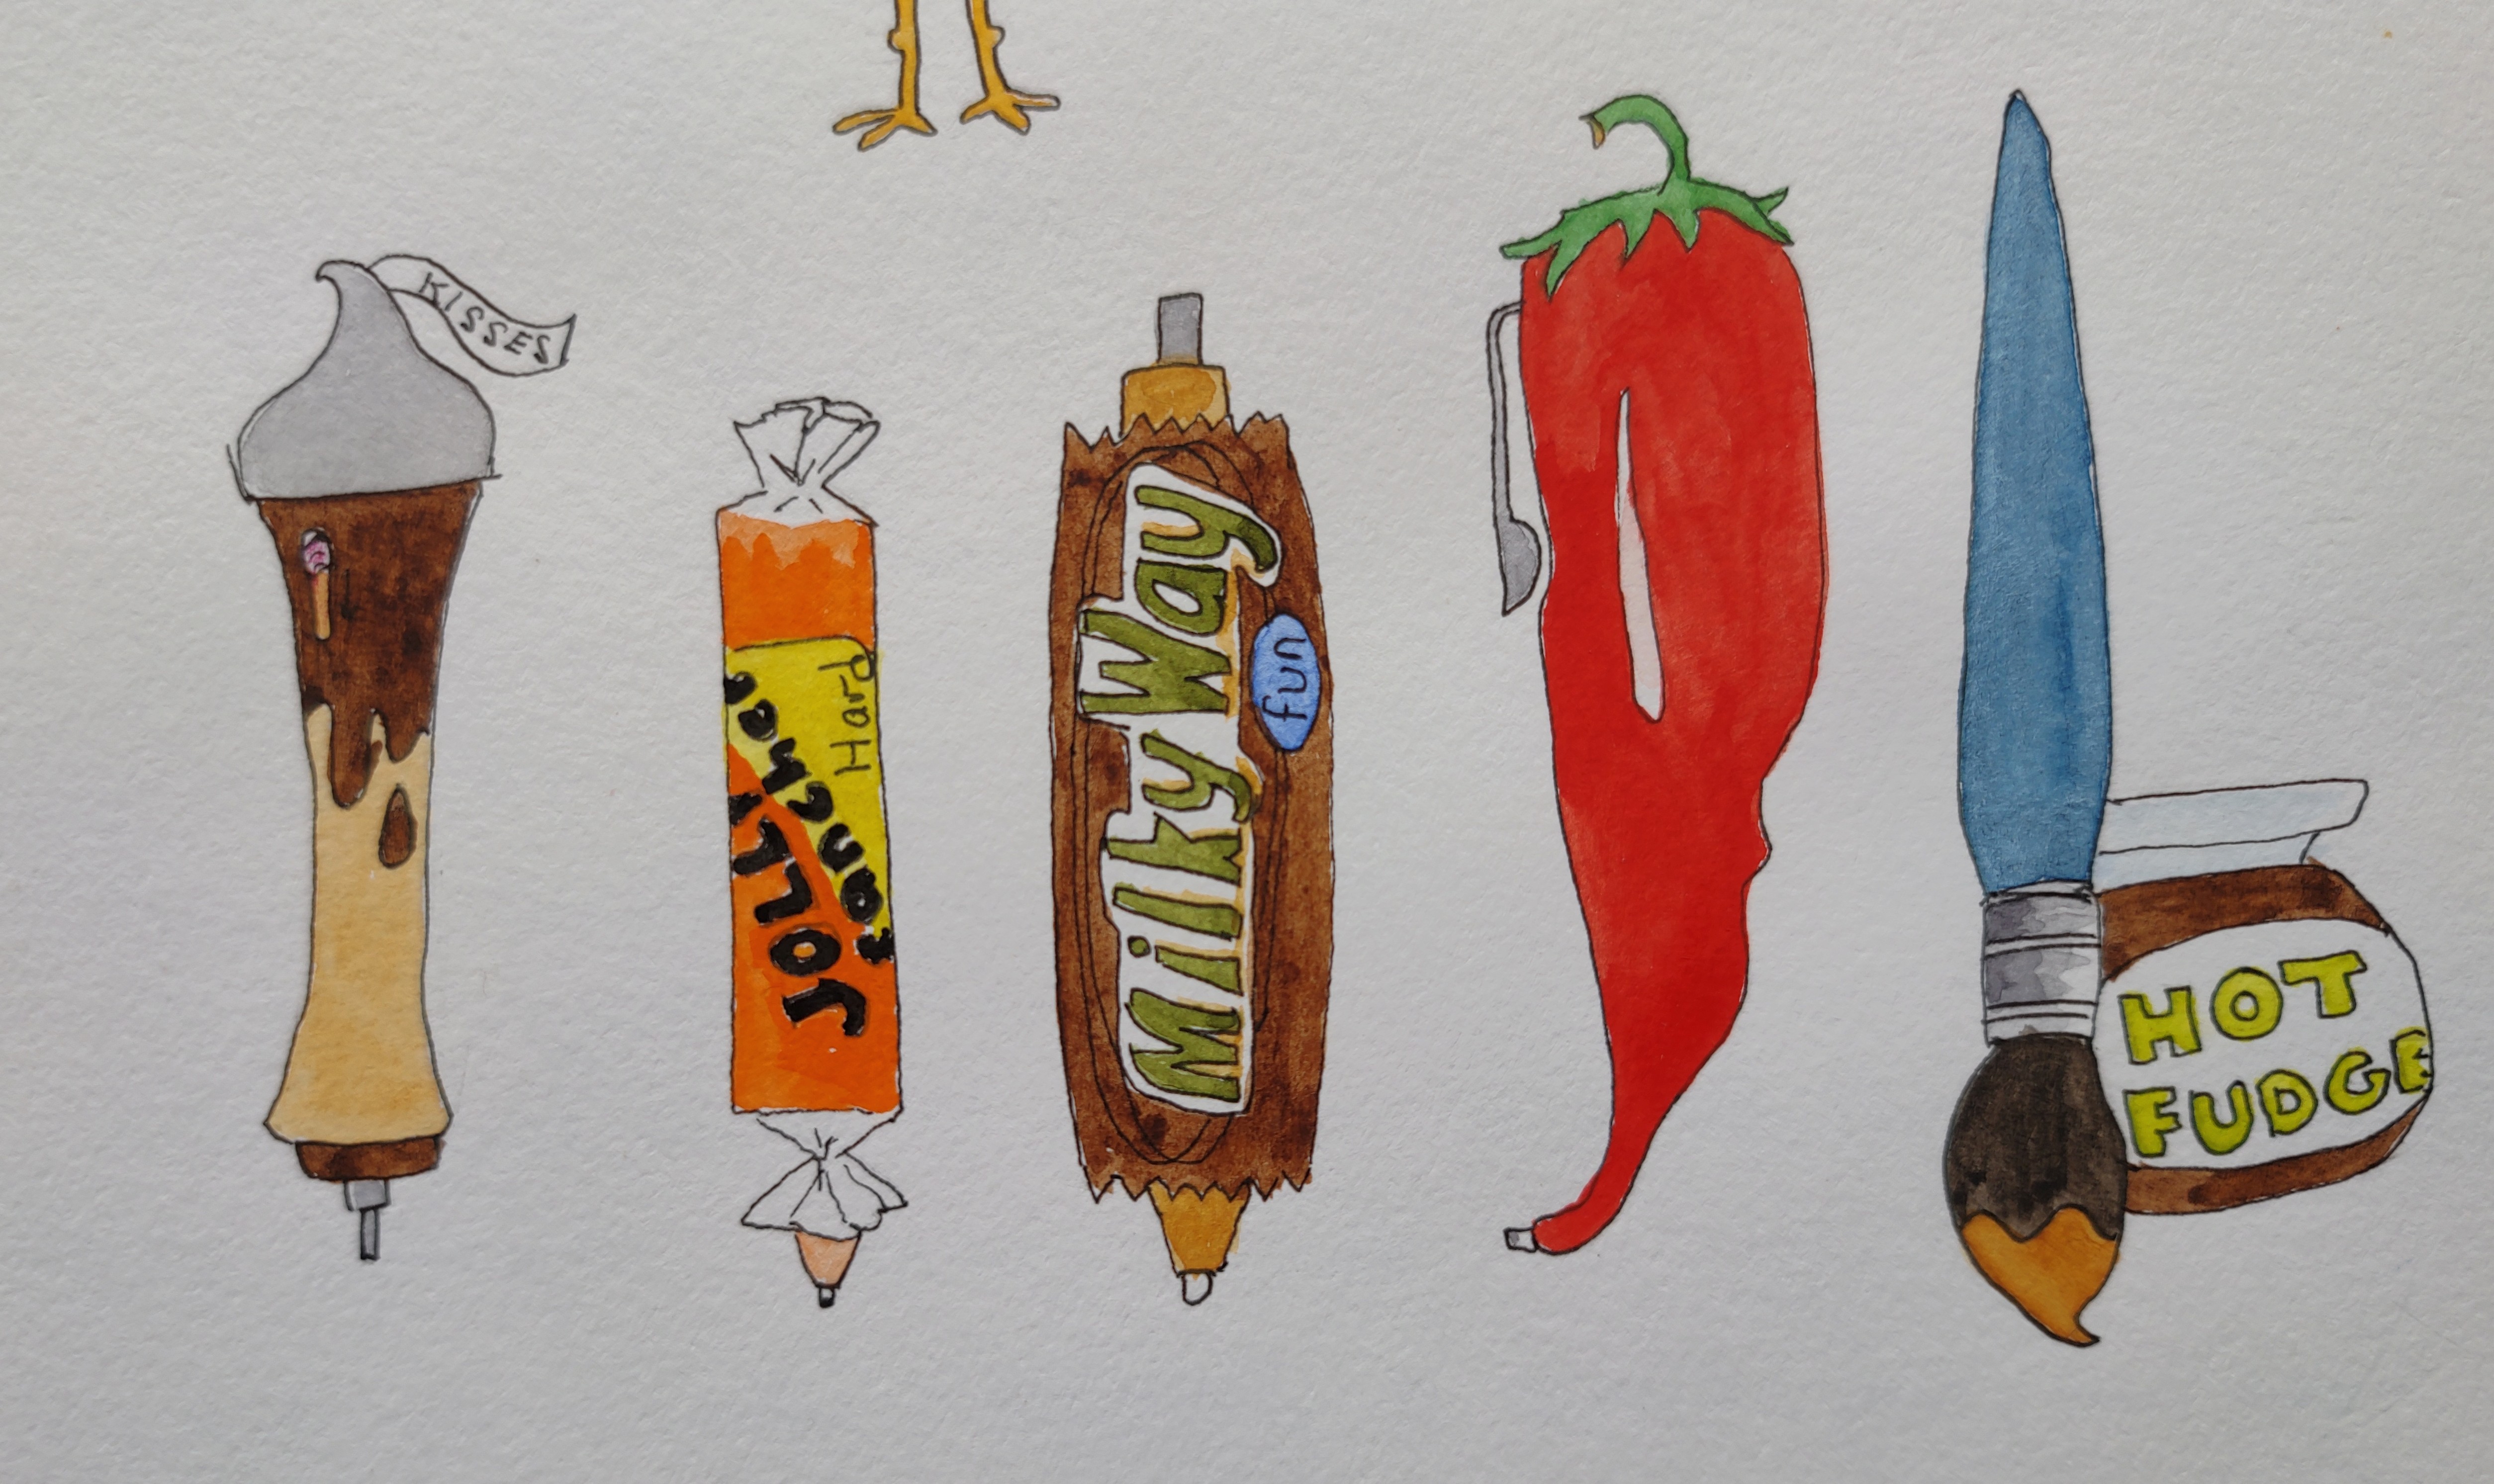 KISSES
JOLLY
Rancher
Hard
Milky Way
fun
HOT
FUDGE